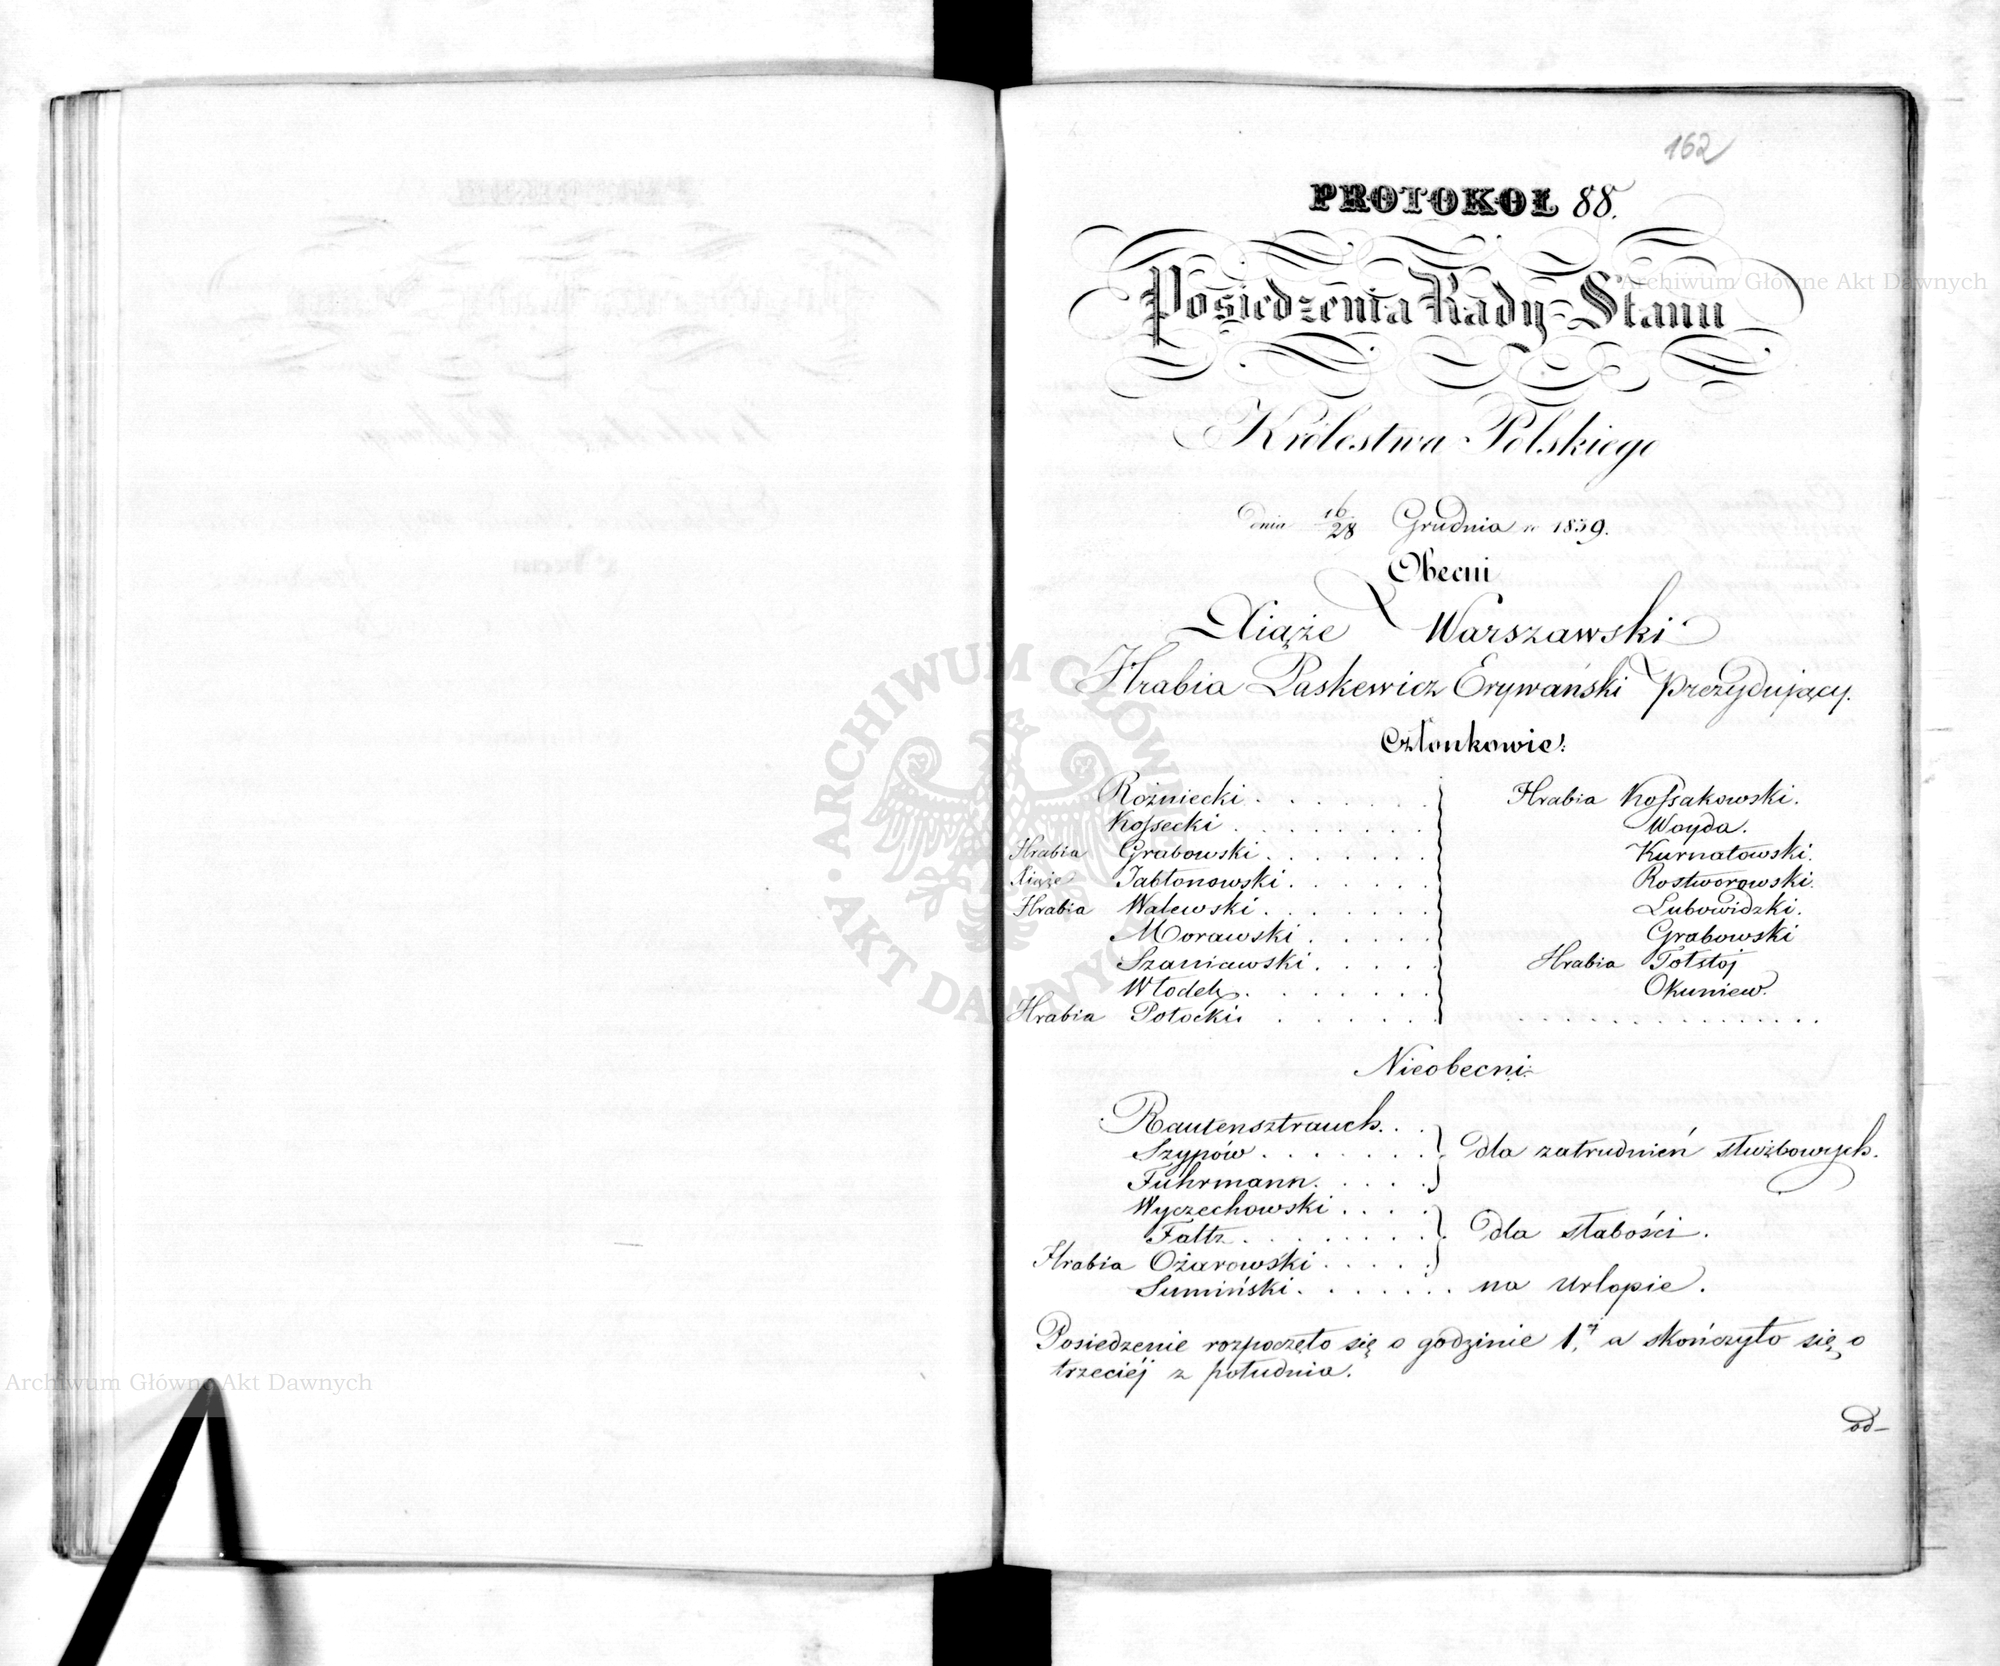 162
PROTOKOŁ 88.
Posiedzenia Rady Stanu
Królestwa Polskiego
dnia 16/28 Grudnia r 1839.
Obecni
Xiąże Warszawski
Hrabia Paskewicz Erywański Prezydujący.
Członkowie:
Rożniecki . . . . . . . Hrabia Koſsakowski.
Koſsecki . . . . . . . . Woyda.
Hrabia Grabowski . . . . . . Kurnatowski.
Xiąże Jabłonowski . . . . . Rostworowski.
Hrabia Walewski . . . . . . Lubowidzki.
Morawski . . . . . Grabowski
Szaniawski . . . . . Hrabia Tołstoj
Włodek . . . . . . . Okuniew.
Hrabia Potocki . . . . . . . . . . . . . . . . . . . .
Nieobecni:
Rautensztrauch . .
Szypów . . . . . . . dla zatrudnień służbowych.
Fuhrmann . . . . .
Wyczechowski . . . .
Faltz . . . . . . . . dla słabości.
Hrabia Ożarowski . . . . .
Sumiński . . . . . . . na urlopie.
Posiedzenie rozpoczęło się o godzinie 1, a skończyło się o
trzeciéj z południa.
od-
Archiwum Główne Akt Dawnych
Archiwum Główne Akt Dawnych
ARCHIWUM GŁÓWNE AKT DAWNYCH